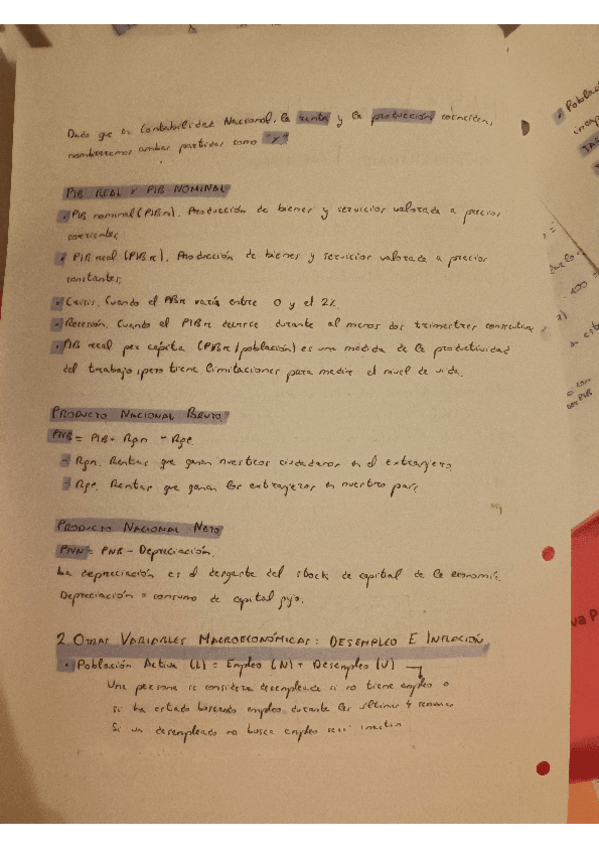 Dado que en Contabilidad Nacional, la renta y la producción coinciden,
nombraremos ambas partidas como "Y"
PIB REAL Y PIB NOMINAL
• PIB nominal (PIBn). Producción de bienes y servicios valorada a precios
corrientes
• PIB real (PIBR). Producción de bienes y servicios valorada a precios
constantes.
• Crisis. Cuando el PIBR varía entre 0 y el 2%.
• Recesión. Cuando el PIBR decrece durante al menos dos trimestres consecutivos
• PIB real per cápita (PIBR/población) es una medida de la productividad
del trabajo, pero tiene limitaciones para medir el nivel de vida.
PRODUCTO NACIONAL BRUTO.
PNB = PIB + Rpn - Rpe
→ Rpn. Rentas que ganan nuestros ciudadanos en el extranjero.
→ Rpe. Rentas que ganan los extranjeros en nuestro país
PRODUCTO NACIONAL NETO
PNN = PNB - Depreciación.
La depreciación es el desgaste del stock de capital de la economía.
Depreciación = consumo de capital fijo.
2. OTRAS VARIABLES MACROECONÓMICAS: DESEMPLEO E INFLACIÓN.
• Población Activa (L) = Empleo (N) + Desempleo (U)
Una persona se considera desempleada si no tiene empleo o
si ha estado buscando empleo durante las últimas 4 semanas
Si un desempleado no busca empleo será
• Població
100 =